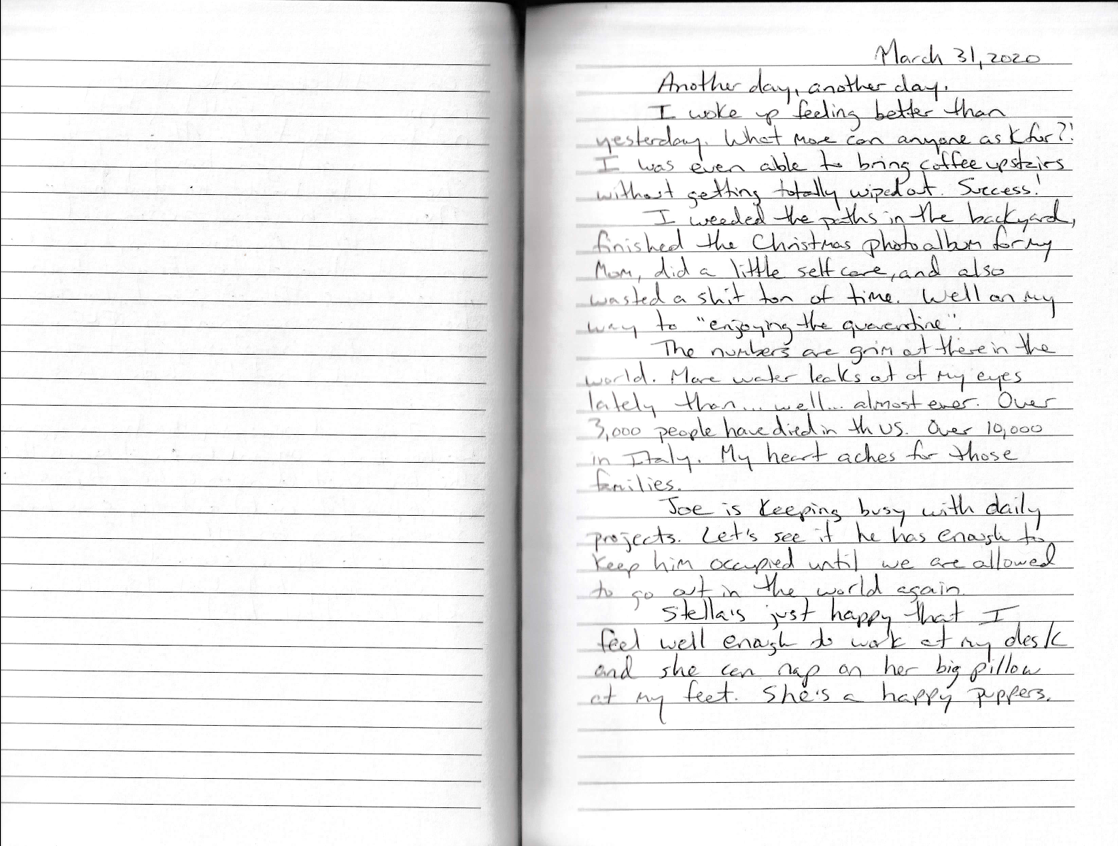 March 31, 2020
Another day, another day.
I woke up feeling better than
yesterday. What more can anyone ask for?!
I was even able to bring coffee upstairs
without getting totally wiped out. Success!
I weeded the paths in the backyard,
finished the Christmas photo album for my
Mom, did a little self care, and also
wasted a shit ton of time. Well on my
way to "enjoying the quarentine".
The numbers are grim out there in the
world. More water leaks out of my eyes
lately than... well... almost ever. Over
3,000 people have died in th US. Over 10,000
in Italy. My heart aches for those
families.
Joe is keeping busy with daily
projects. Let's see if he has enough to
keep him occupied until we are allowed
to go out in the world again.
Stella's just happy that I
feel well enough to work at my desk
and she can nap on her big pillow
at my feet. She's a happy puppers.